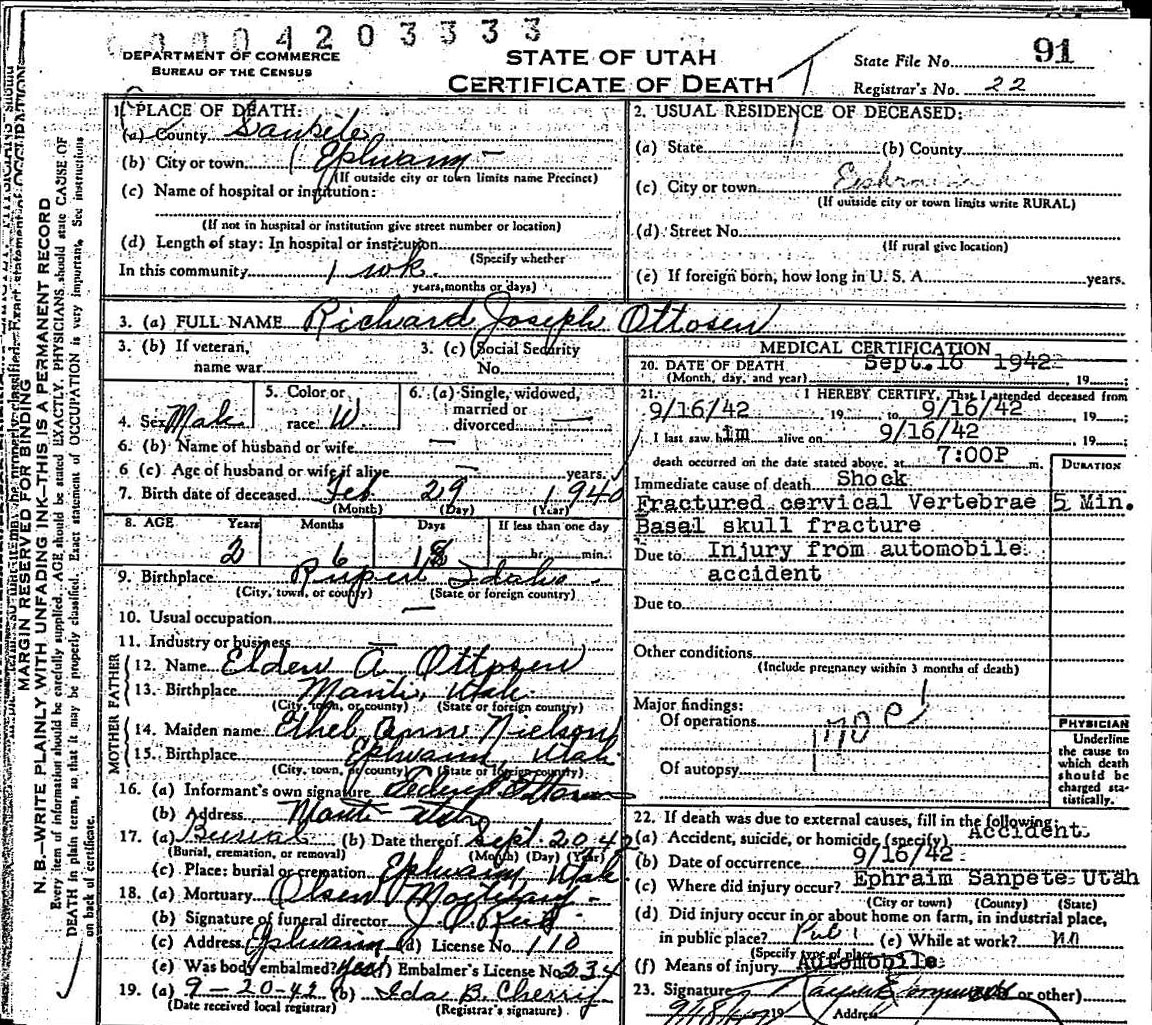 0004203333
DEPARTMENT OF COMMERCE
BUREAU OF THE CENSUS
STATE OF UTAH
CERTIFICATE OF DEATH
State File No. 91
Registrar's No. 22
MARGIN RESERVED FOR BINDING
N. B.—WRITE PLAINLY WITH UNFADING INK—THIS IS A PERMANENT RECORD
Every item of information should be carefully supplied. AGE should be stated EXACTLY. PHYSICIANS should state CAUSE OF
DEATH in plain terms, so that it may be properly classified. Exact statement of OCCUPATION is very important. See instructions
on back of certificate.
1. PLACE OF DEATH:
(a) County Sanpete
(b) City or town Ephraim
(If outside city or town limits name Precinct)
(c) Name of hospital or institution:
(If not in hospital or institution give street number or location)
(d) Length of stay: In hospital or institution
(Specify whether
In this community 1 wk.
years, months or days)
2. USUAL RESIDENCE OF DECEASED:
(a) State (b) County
(c) City or town Ephraim
(If outside city or town limits write RURAL)
(d) Street No.
(If rural give location)
(e) If foreign born, how long in U. S. A. years.
3. (a) FULL NAME Richard Joseph Ottosen
3. (b) If veteran, 3. (c) Social Security
name war No.
4. Sex Male 5. Color or race W. 6. (a) Single, widowed, married or divorced —
6. (b) Name of husband or wife —
6 (c) Age of husband or wife if alive — years.
7. Birth date of deceased Feb. 29 1940
(Month) (Day) (Year)
8. AGE Years Months Days If less than one day
2 6 18 hr. min.
9. Birthplace Rupert Idaho
(City, town, or county) (State or foreign country)
10. Usual occupation —
11. Industry or business —
FATHER
12. Name Elden A. Ottosen
13. Birthplace Manti, Utah
(City, town, or county) (State or foreign country)
MOTHER
14. Maiden name Ethel Anne Nielson
15. Birthplace Ephraim, Utah
(City, town, or county) (State or foreign country)
16. (a) Informant's own signature Ottosen
(b) Address Manti - Utah
17. (a) Burial (b) Date thereof Sept. 20 42
(Burial, cremation, or removal) (Month) (Day) (Year)
(c) Place: burial or cremation Ephraim Utah
18. (a) Mortuary Olsen Mortuary
(b) Signature of funeral director
(c) Address Ephraim (d) License No. 110
(e) Was body embalmed? yes Embalmer's License No. 234
19. (a) 9-20-42 (b) Ida B. Cherry
(Date received local registrar) (Registrar's signature)
MEDICAL CERTIFICATION
20. DATE OF DEATH Sept. 16 1942
(Month, day, and year) 19 ;
21. I HEREBY CERTIFY, That I attended deceased from
9/16/42 19 to 9/16/42 19 ;
I last saw him alive on 9/16/42 19 ;
death occurred on the date stated above, at 7:00P m.
DURATION
Immediate cause of death Shock
Fractured cervical Vertebrae 5 Min.
Basal skull fracture
Due to Injury from automobile
accident
Due to
Other conditions
(Include pregnancy within 3 months of death)
Major findings:
Of operations
Of autopsy
PHYSICIAN
Underline
the cause to
which death
should be
charged sta-
tistically.
22. If death was due to external causes, fill in the following:
(a) Accident, suicide, or homicide (specify) Accident
(b) Date of occurrence 9/16/42
(c) Where did injury occur? Ephraim Sanpete Utah
(City or town) (County) (State)
(d) Did injury occur in or about home on farm, in industrial place,
in public place? Publ (e) While at work? no
(Specify type of place)
(f) Means of injury Automobile
23. Signature or other)
19 Address